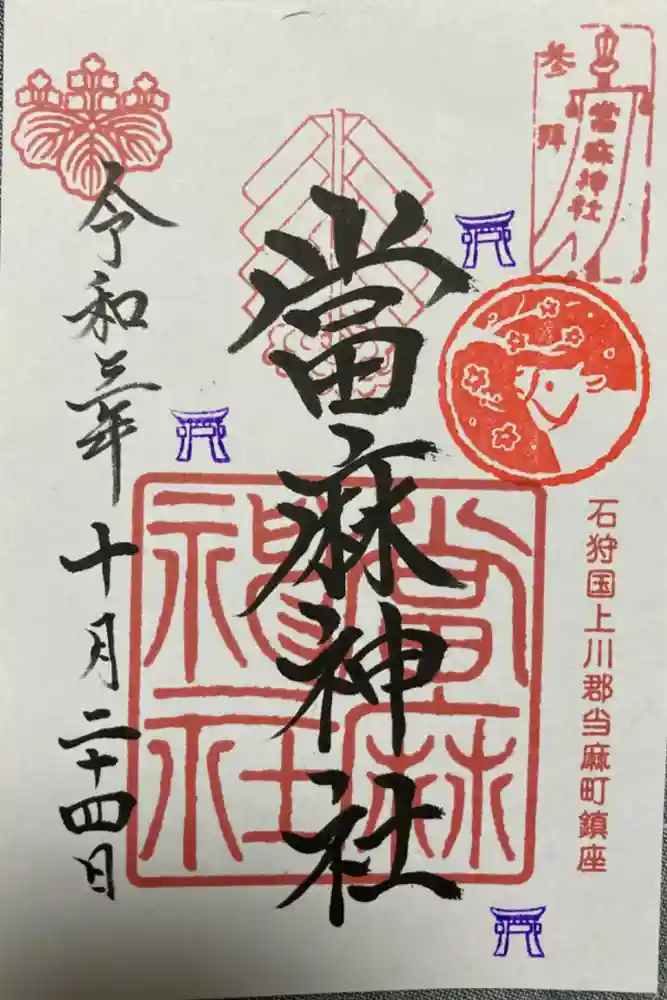 参拝
當麻神社
石狩国上川郡当麻町鎮座
當麻神社
當麻神社
令和三年
十月二十四日